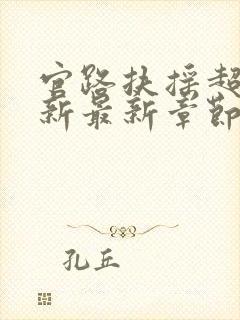 官路扶摇超
新最新章節
孔丘